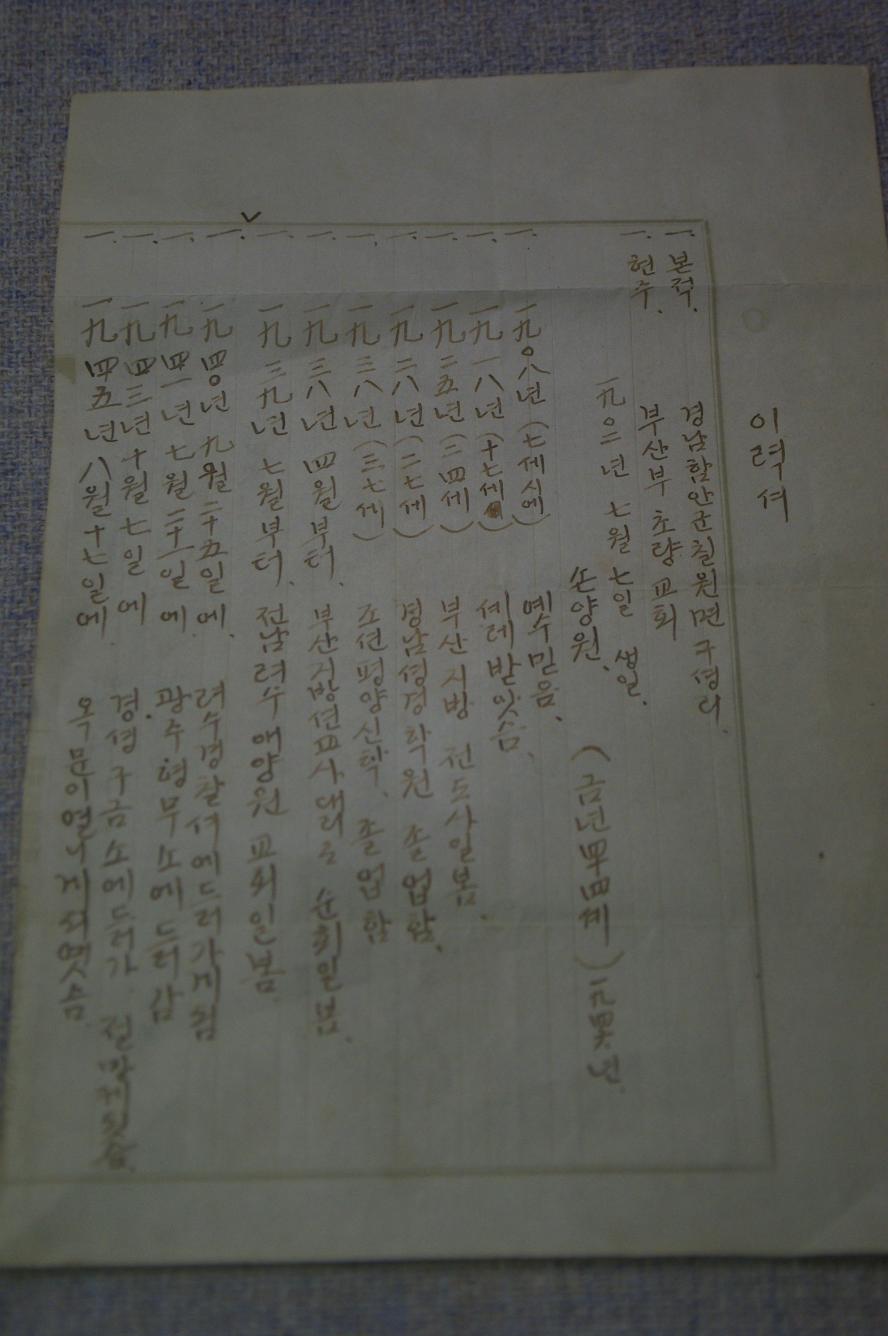 이력셔
一. 본적. 경남함안군칠원면구셩리.
一. 현주. 부산부 초량교회
一九〇二年 七월 七일 생일.
손양원. (금년四十四세) 一九四六년.
一. 一九〇八년 (七세시에) 예수믿음.
一. 一九一八년 (十七세) 셰례받잇슴.
一. 一九二五년 (二四세) 부산지방 전도사일봄.
一. 一九二八년 (二七세) 경남셩경학원 졸업함.
一. 一九三八년 (三七세) 조션평양신학. 졸업함
一. 一九三八년 四월부터. 부산지방션교사대리로 순회일봄.
一. 一九三九년 七월부터. 전남려수애양원 교회일봄.
一. 一九四〇년 九월二十五일에. 려수경찰셔에드러가게됨
一. 一九四一년 七월二十一일에. 광주형무소에드러감
一. 一九四三년十월七일에 경셩구금소에드러가
一. 一九四五년八월十七일에. 옥문이열니게되엿슴.